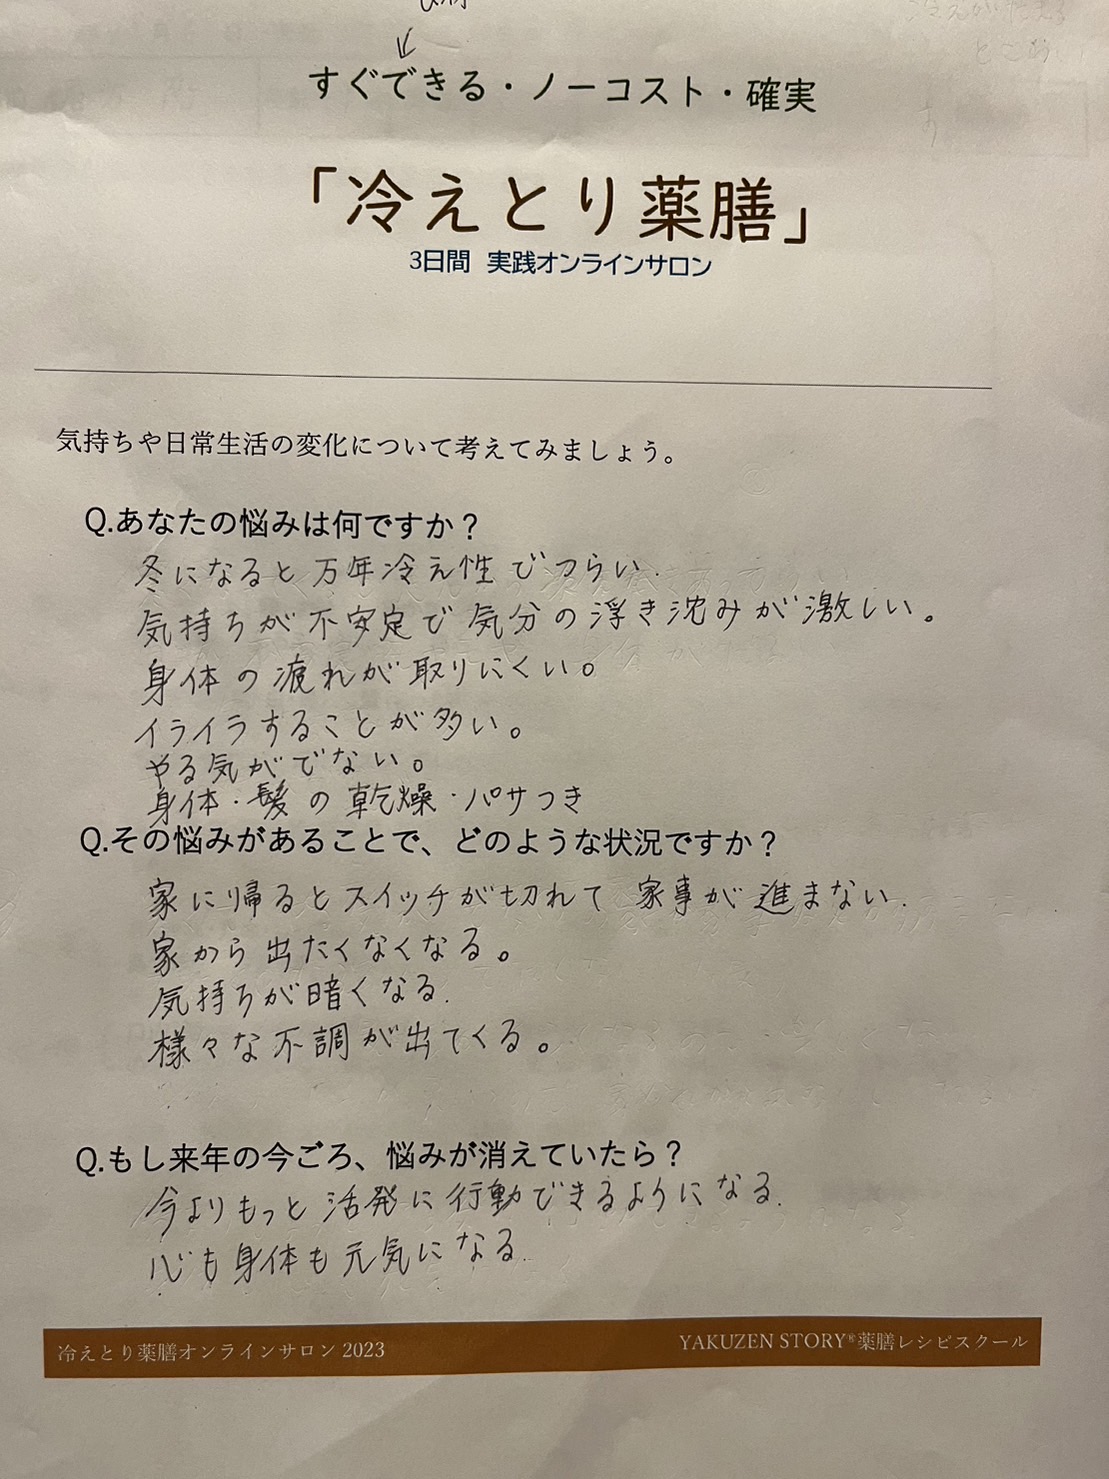 すぐできる・ノーコスト・確実
「冷えとり薬膳」
3日間 実践オンラインサロン
気持ちや日常生活の変化について考えてみましょう。
Q.あなたの悩みは何ですか？
冬になると万年冷え性でつらい.
気持ちが不安定で気分の浮き沈みが激しい。
身体の疲れが取りにくい。
イライラすることが多い。
やる気がでない。
身体・髪の乾燥・パサつき
Q.その悩みがあることで、どのような状況ですか？
家に帰るとスイッチが切れて家事が進まない.
家から出たくなくなる。
気持ちが暗くなる.
様々な不調が出てくる。
Q.もし来年の今ごろ、悩みが消えていたら？
今よりもっと活発に行動できるようになる.
心も身体も元気になる.
冷えとり薬膳オンラインサロン 2023
YAKUZEN STORY®薬膳レシピスクール